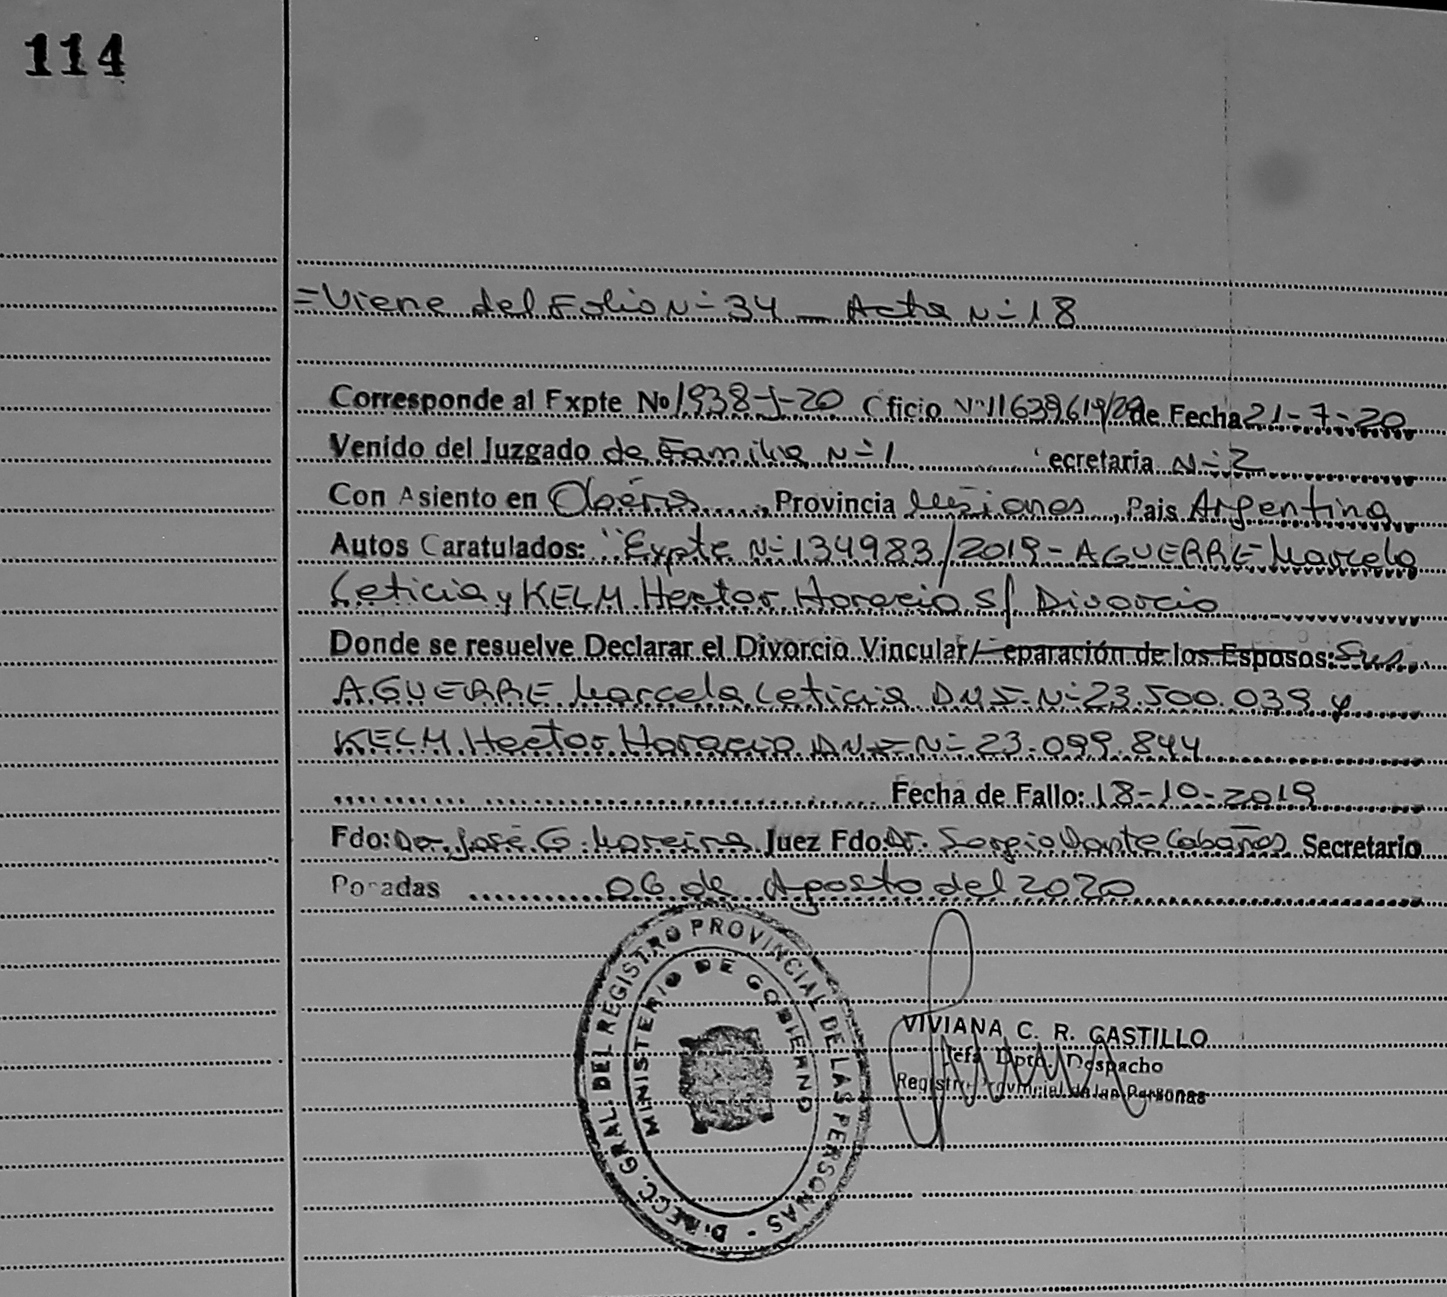 114
=Viene del Folio Nº 34 — Acta Nº 18
Corresponde al Expte Nº 1938-J-20 Oficio Nº 11639619/20 de Fecha 21-7-20
Venido del Juzgado de Familia Nº 1 ecretaria Nº 2
Con Asiento en Oberá, Provincia Misiones, Pais Argentina
Autos Caratulados: "Expte Nº 134983/2019 - AGUERRE Marcela
Leticia y KELM Hector Horacio S/ Divorcio
Donde se resuelve Declarar el Divorcio Vincular/ eparación de los Esposos:
AGUERRE Marcela Leticia DNI-Nº 23.500.039 y
KELM Hector Horacio DNI-Nº 23.099.844
Fecha de Fallo: 18-10-2019
Fdo: Dr. José G. Moreira Juez Fdo Dr. Sergio Dante Cabañas Secretario
Posadas 06 de Agosto del 2020
DIRECC. GRAL. DEL REGISTRO PROVINCIAL DE LAS PERSONAS -
MINISTERIO DE GOBIERNO
VIVIANA C. R. CASTILLO
Jefa Dpto. Despacho
Registro Provincial de las Personas